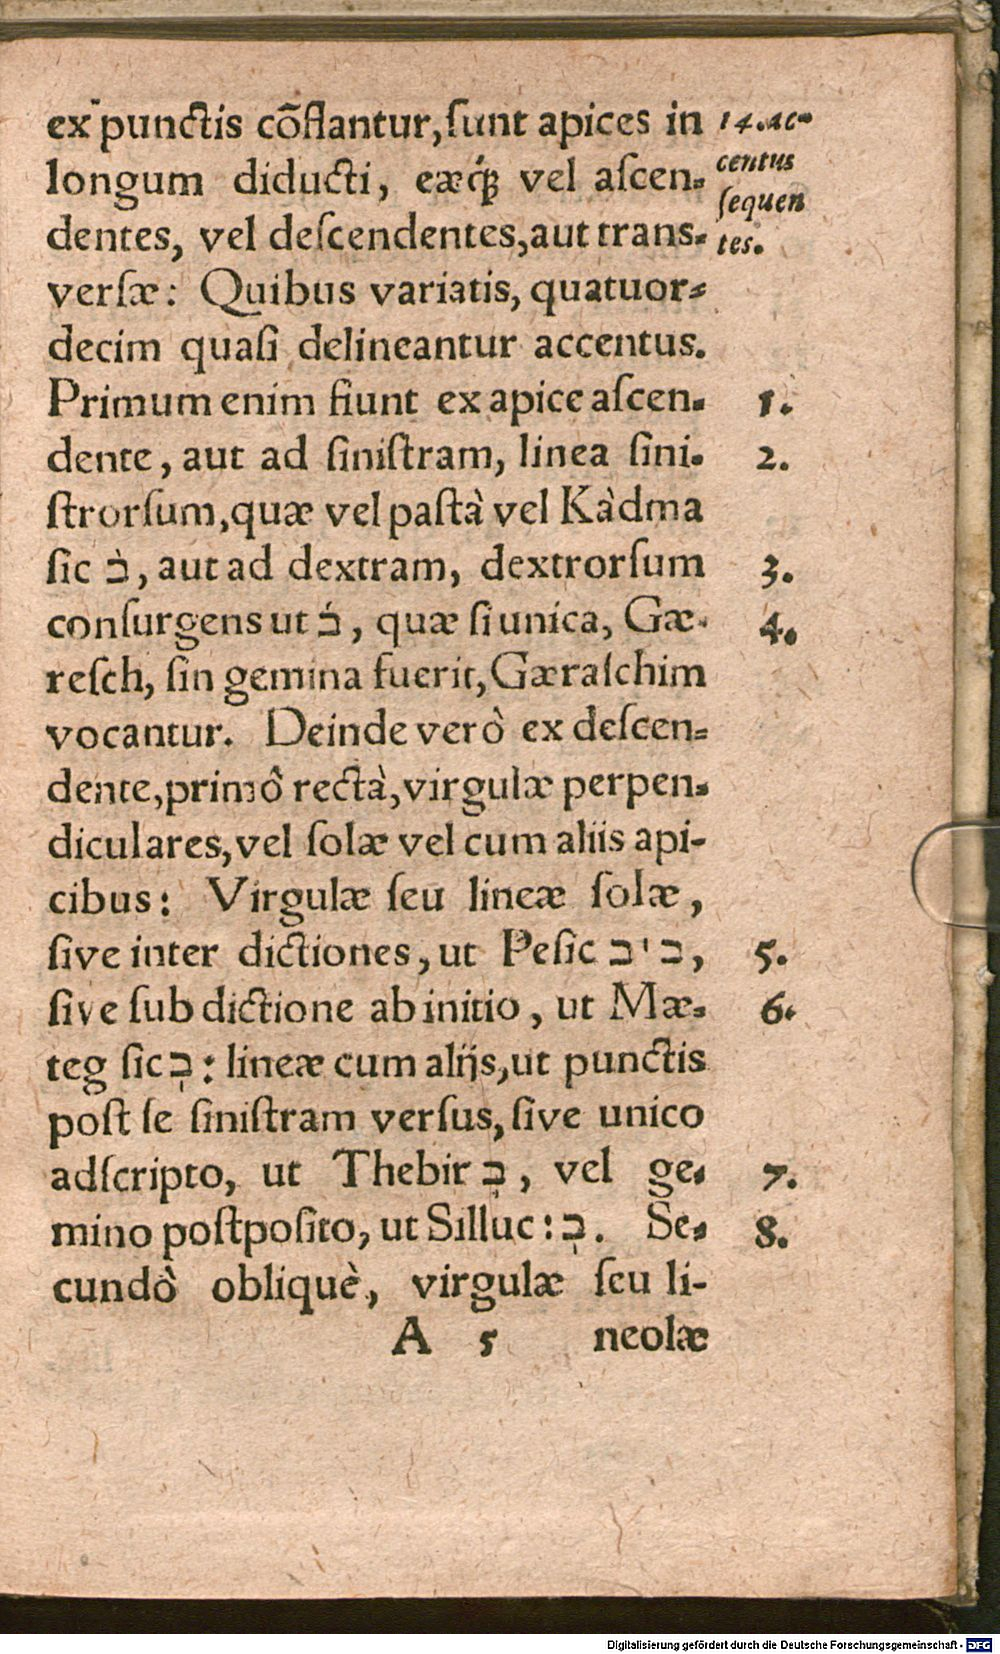 ex punctis cõflantur, ſunt apices in
14. ac-
longum diducti, eæq́; vel aſcen-
centus
ſequen
dentes, vel deſcendentes, aut trans-
tes.
verſæ: Quibus variatis, quatuor-
decim quaſi delineantur accentus.
Primum enim fiunt ex apice aſcen-
1.
dente, aut ad ſiniſtram, linea ſini-
2.
ſtrorſum, quæ vel paſtà vel Kàdma
ſic ב֨, aut ad dextram, dextrorſum
3.
conſurgens ut ב֜, quæ ſi unica, Gæ-
4.
reſch, ſin gemina fuerit, Gæraſchim
vocantur. Deinde verò ex deſcen-
dente, primò rectà, virgulæ perpen-
diculares, vel ſolæ vel cum aliis api-
cibus: Virgulæ ſeu lineæ ſolæ,
ſive inter dictiones, ut Peſic ב ׀ ב,
5.
ſive ſub dictione ab initio, ut Mæ-
6.
teg ſic בֽ: lineæ cum alijs, ut punctis
poſt ſe ſiniſtram verſus, ſive unico
adſcripto, ut Thebir ב֛, vel ge-
7.
mino poſtpoſito, ut Silluc :בֽ. Se-
8.
cundò obliquè, virgulæ ſeu li-
A 5 neolæ
Digitalisierung gefördert durch die Deutsche Forschungsgemeinschaft - DFG